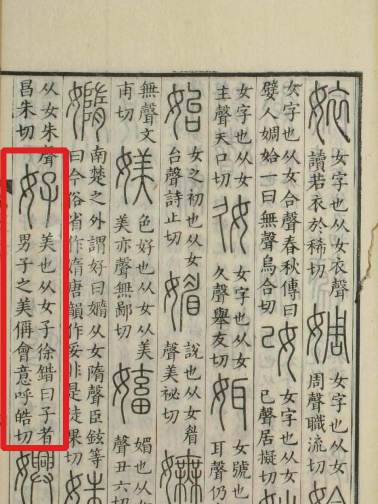 㛄 女字也从女衣聲
讀若衣於稀切
婤 女字也从女
周聲職流切
女字也从女合聲春秋傳曰
嬖人婤姶一曰無聲烏合切
女字也从女
己聲居擬切
女字也从女
主聲天口切
㚲 女字也从女
久聲舉友切
女號也从女
耳聲仍
始 女之初也从女
台聲詩止切
媚 說也从女眉
聲美祕切
嫵
無聲文
甫切
媄 色好也从女从美
美亦聲無鄙切
媚也从女
聲丑六切
嫷 南楚之外謂好曰嫷从女隋聲臣鉉等
曰今俗省作婧唐韻作妥非是徒果切
姝
从女朱聲
昌朱切
好 美也从女子徐鍇曰子者
男子之美偁會意呼皓切
嬹